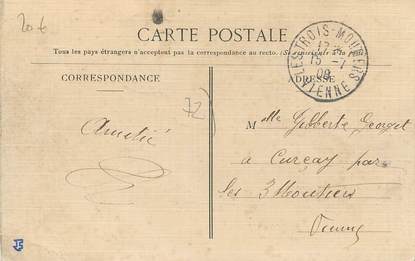 20 €
CARTE POSTALE
Tous les pays étrangers n'acceptent pas la correspondance au recto. (Se renseigner à la poste)
CORRESPONDANCE
ADRESSE
LES TROIS-MOUTIERS
15 -7
09
VIENNE
72
Amitié
Mlle Gilberte Georget
à Curçay par
les 3 Moutiers
Vienne